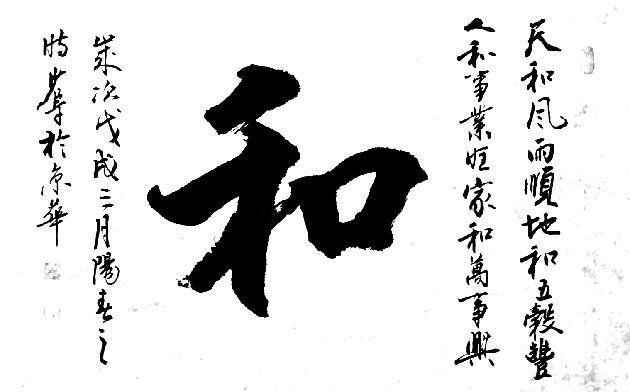 天和風雨順地和五穀豐
人和事業旺家和萬事興
和
歲次戊戌三月陽春之
時羣於京華